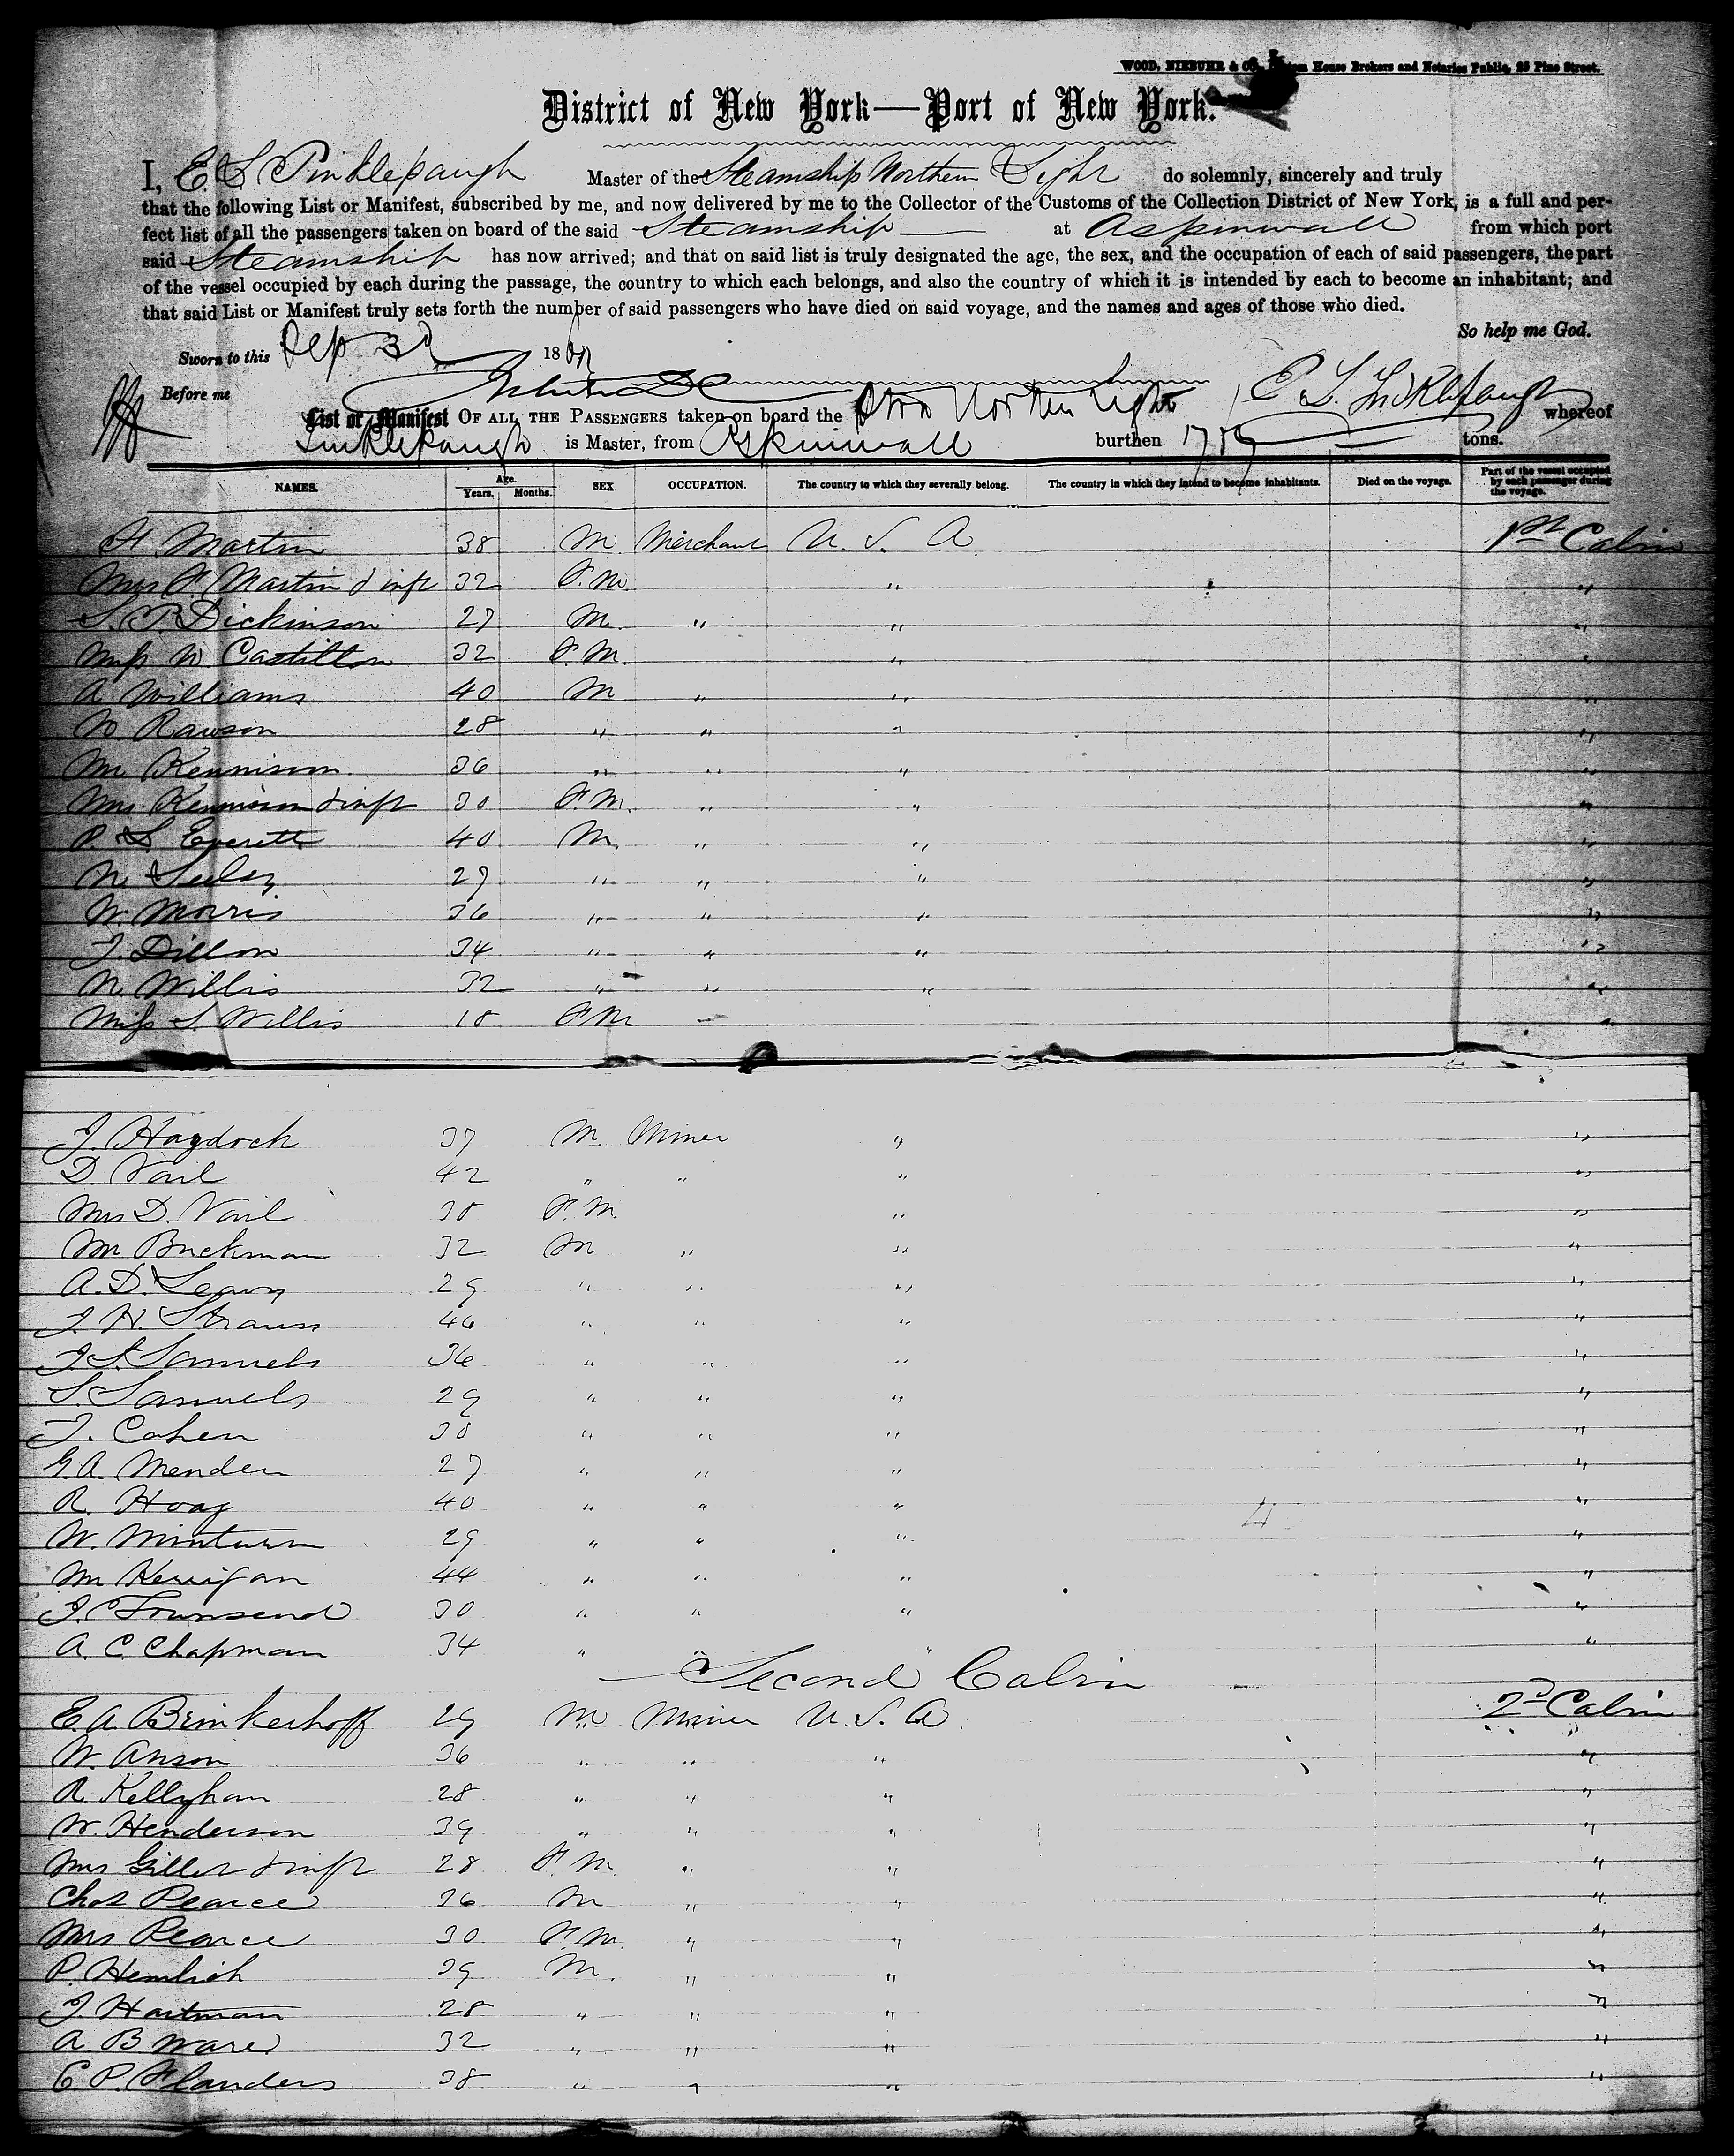 WOOD, NIEBUHR & Co. Custom House Brokers and Notaries Public, 25 Pine Street.
District of New York—Port of New York.
I, E L Tinklepaugh Master of the Steamship Northern Light do solemnly, sincerely and truly
that the following List or Manifest, subscribed by me, and now delivered by me to the Collector of the Customs of the Collection District of New York, is a full and per-
fect list of all the passengers taken on board of the said Steamship at Aspinwall from which port
said Steamship has now arrived; and that on said list is truly designated the age, the sex, and the occupation of each of said passengers, the part
of the vessel occupied by each during the passage, the country to which each belongs, and also the country of which it is intended by each to become an inhabitant; and
that said List or Manifest truly sets forth the number of said passengers who have died on said voyage, and the names and ages of those who died.
So help me God.
Sworn to this Sep 3d 186
Before me E. L. Tinklepaugh
List or Manifest OF ALL THE PASSENGERS taken on board the Northern Light whereof
Tinklepaugh is Master, from Aspinwall burthen tons.
NAMES. Age. Years. Months. SEX. OCCUPATION. The country to which they severally belong. The country in which they intend to become inhabitants. Died on the voyage. Part of the vessel occupied by each passenger during the voyage.
F Martin 38 M Merchant U. S. A 1st Cabin
Mrs F. Martin & inft 32 F. M. " "
S. P. Dickinson 27 M. " " "
Miss W Castillon 32 F. M. " "
A Williams 40 M " " "
W Rawson 28 " " " "
M Kennison 36 " " " "
Mrs Kennison & inft 30 F. M. " " "
P. S Everett 40 M, " " "
N Seeley 27 " " " "
W Morris 36 " " " "
J. Dillon 34 " " " "
N Willis 32 " " " "
Miss S. Willis 18 F M "
J. Haydock 37 M. Miner " "
D Vail 42 " " " "
Mrs D. Vail 38 F. M. " "
M Buckman 32 M " " "
A. D. Leavy 29 " " " "
J. H. Strauss 46 " " " "
J S. Samuels 36 " " " "
S. Samuels 29 " " " "
J. Cohen 30 " " " "
G. A. Menden 27 " " " "
R. Hoag 40 " " " "
W. Minturn 29 " " " "
M Kerrigan 44 " " " "
J. Townsend 30 " " " "
A. C. Chapman 34 " " " "
Second Cabin
E. A Brinkerhoff 29 M Miner U. S. A. 2d Cabin
W. Anson 36 " " " "
R. Kellyhan 28 " " " "
W. Henderson 39 " " " "
Mrs Giller & inft 28 F. M. " " "
Chas Pearce 36 M " " "
Mrs Pearce 30 F. M. " " "
P. Hemlich 39 M. " " "
J. Hartman 28 " " " "
A. B Ware 32 " " " "
C. P. Flanders 38 " " " "